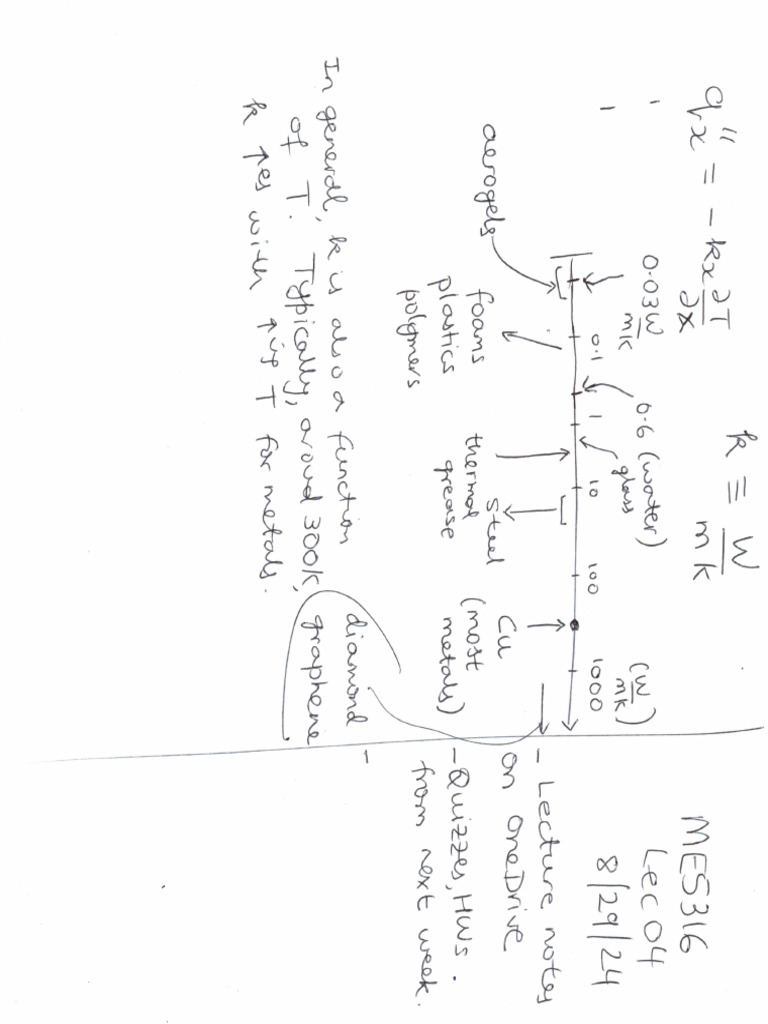 q''x = -kx ∂T/∂x
k ≡ W/mk
0.03W/mk
0.6 (water)
glass
(W/mk)
0.1 1 10 100 1000
aerogels
foams
plastics
polymers
thermal
grease
steel
Cu
(most
metals)
diamond
graphene
In general, k is also a function
of T. Typically, around 300K,
k ↑es with ↑ing T for metals.
ME5316
Lec 04
8/29/24
- Lecture notes
on OneDrive
- Quizzes, HWs.
from next week.
-